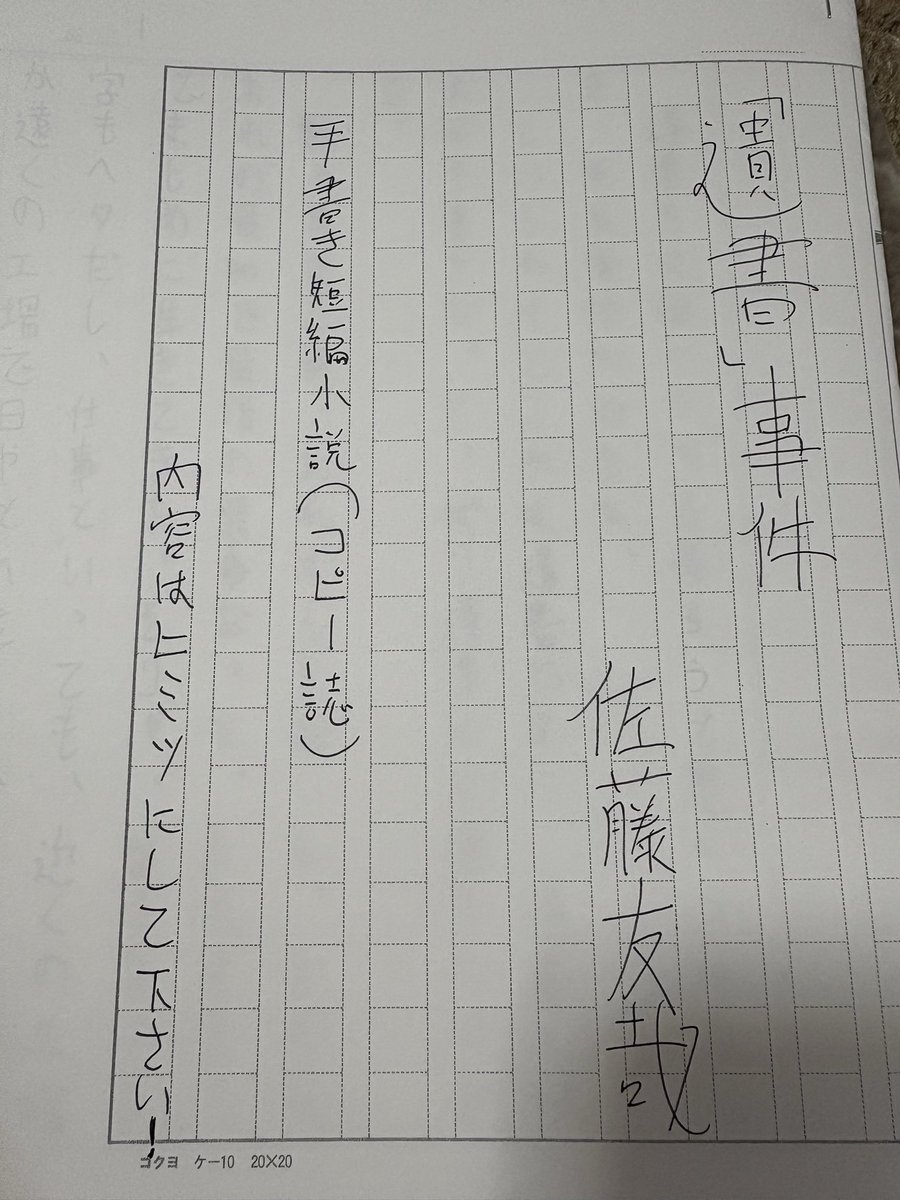 「遺書」事件
佐藤友哉
手書き短編小説(コピー誌)
内容はヒミツにして下さい!
コクヨ ケー10 20×20